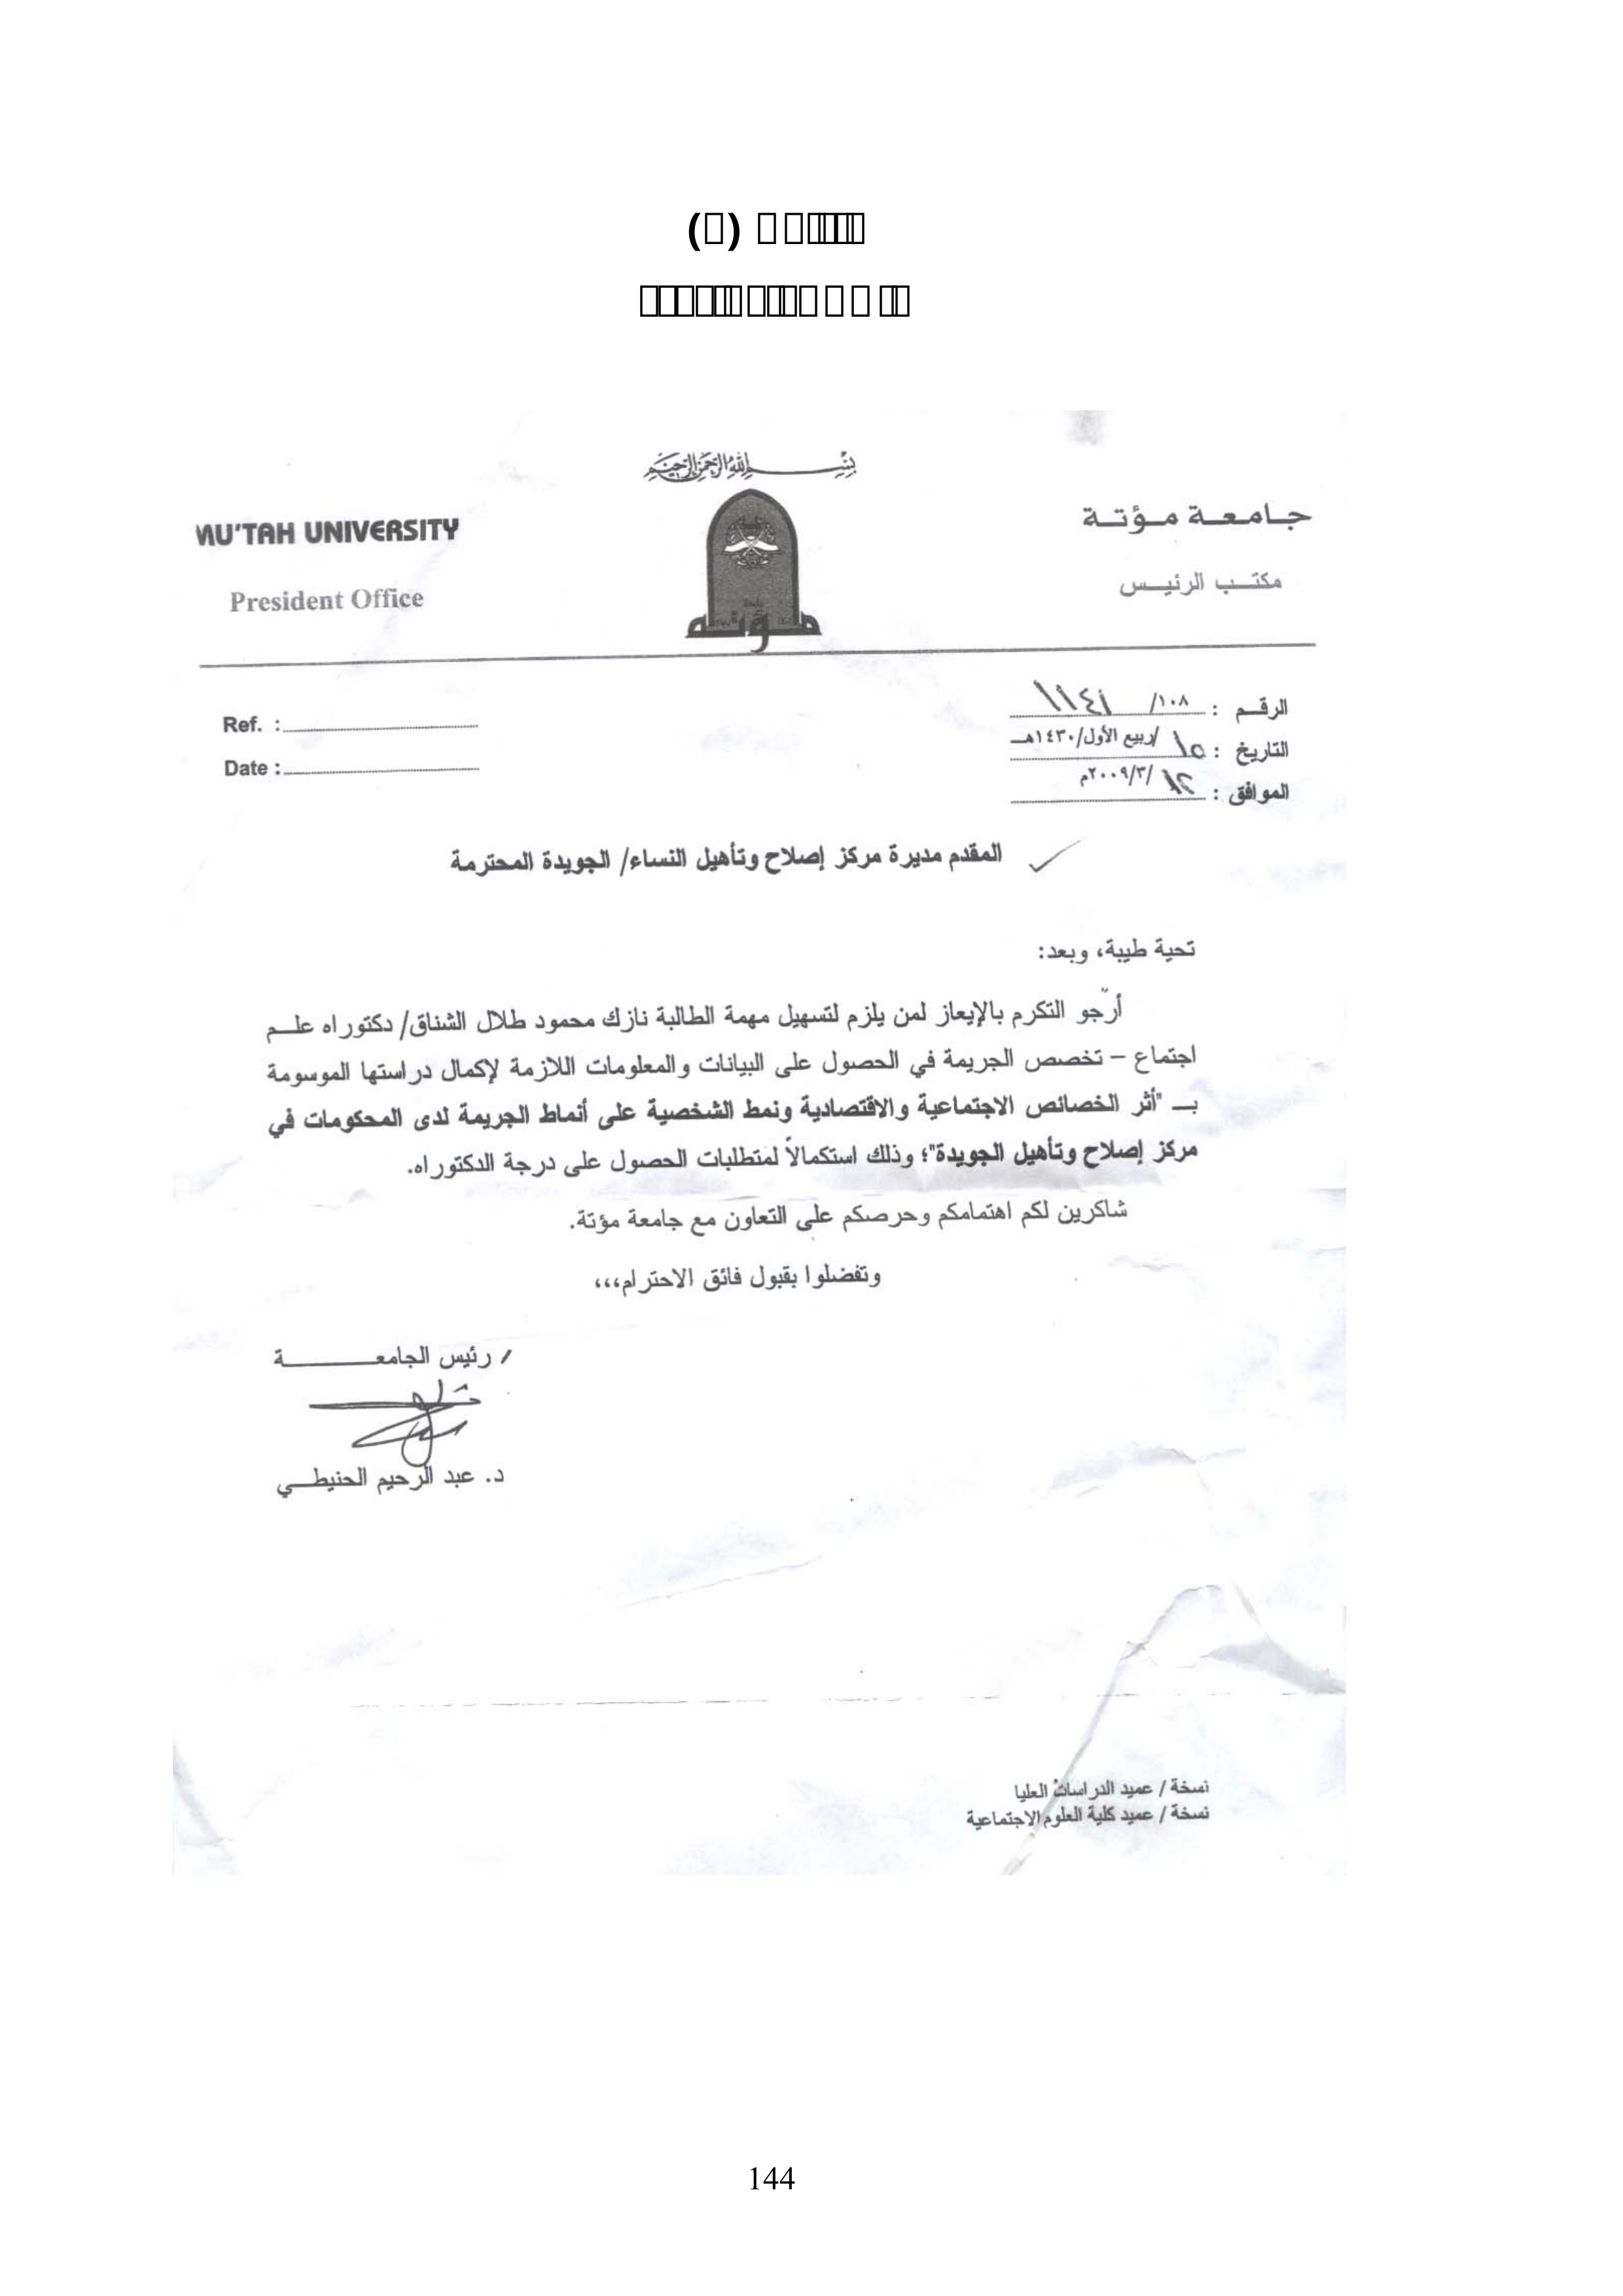 بسم الله الرحمن الرحيم
جامعة مؤتة
MU'TAH UNIVERSITY
مكتب الرئيس
President Office
مؤتة
الرقم : ١٠٨/ ١١٤١
التاريخ : ١٥ /ربيع الأول/١٤٣٠هـ
الموافق : ١٢ /٢٠٠٩/٣م
Ref. :
Date :
المقدم مديرة مركز إصلاح وتأهيل النساء/ الجويدة المحترمة
تحية طيبة، وبعد:
أرجو التكرم بالإيعاز لمن يلزم لتسهيل مهمة الطالبة نازك محمود طلال الشناق/ دكتوراه علم
اجتماع – تخصص الجريمة في الحصول على البيانات والمعلومات اللازمة لإكمال دراستها الموسومة
بـ "أثر الخصائص الاجتماعية والاقتصادية ونمط الشخصية على أنماط الجريمة لدى المحكومات في
مركز إصلاح وتأهيل الجويدة"؛ وذلك استكمالاً لمتطلبات الحصول على درجة الدكتوراه.
شاكرين لكم اهتمامكم وحرصكم على التعاون مع جامعة مؤتة.
وتفضلوا بقبول فائق الاحترام،،،
/ رئيس الجامعة
د. عبد الرحيم الحنيطي
نسخة / عميد الدراسات العليا
نسخة / عميد كلية العلوم الاجتماعية
144